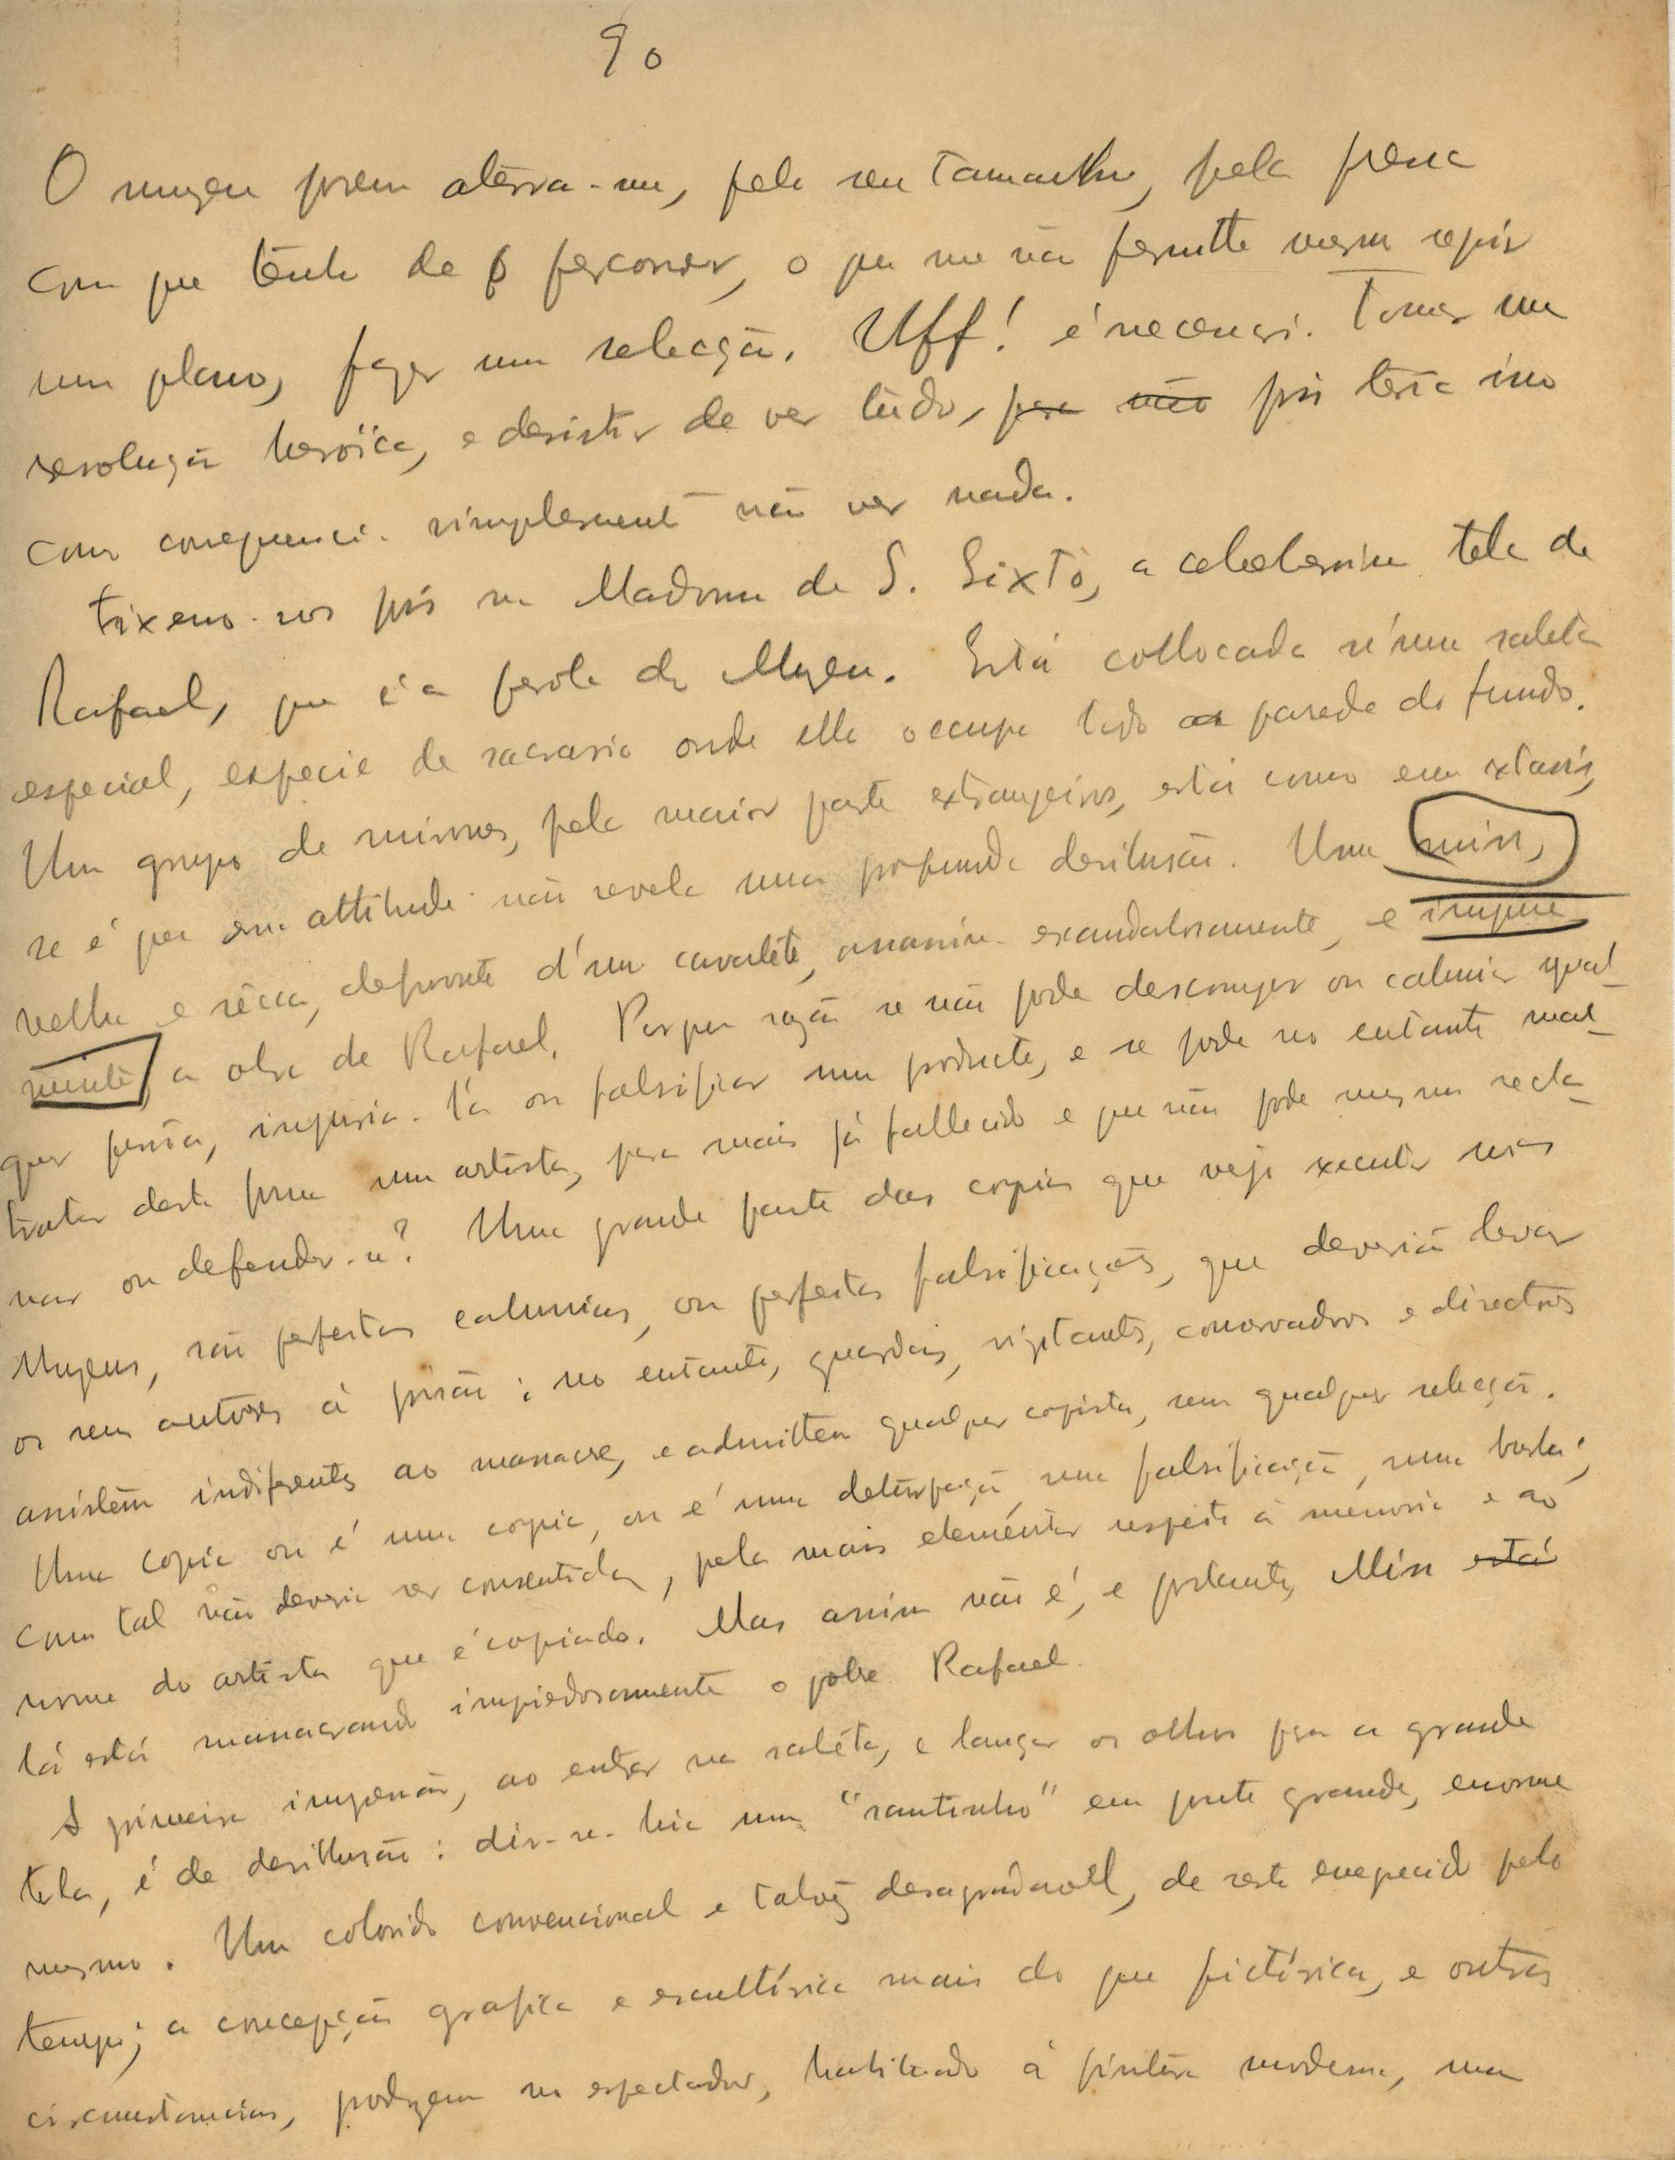 90
O muzeu porem aterra-me, pelo seu tamanho, pela pressa
com que tenho de o percorrer, o que me não permitte mesmo seguir
um plano, fazer uma selecção. Uff! é necessario tomar uma
resolução heroïca, e desistir de ver tudo, para não pois teria isso
como consequencia simplesmente não ver nada.
Fixemo-nos pois na Madonna de S. Sixto, a celeberrima tela de
Rafael, que é a perola do Muzeu. Está collocada n'uma saleta
especial, especie de sacrario onde ella occupa toda a parede do fundo.
Um grupo de mirones, pela maior parte extrangeiros, está como em extasis,
se é que essa attitude não revela uma profunda desilusão. Uma miss,
velha e sêcca, defronte d'um cavalête, assassina escandalosamente, e impune
mente a obra de Rafael. Porque razão se não pode descompor ou caluniar qual-
quer pessoa, injuria-la ou falsificar um producto, e se pode no entanto mal-
tratar desta forma um artista, para mais já fallecido e que não pode mesmo recla-
mar ou defender-se? Uma grande parte das copias que vejo executar nos
Muzeus, são perfeitas calunias, ou perfeitas falsificações, que deveriã levar
os seus autores á prisão; no entanto, guardas, vigilantes, conservadores e directores
assistem indiferentes ao massacre, e admittem qualquer copista, sem qualquer selecção.
Uma copia ou é uma copia, ou é uma deturpação, uma falsificação, uma burla;
como tal não deveria ser consentida, pelo mais elementar respeito á memoria e ao
nome do artista que é copiado. Mas assim não é, e portanto, Miss está
lá está massacrando impiedosamente o pobre Rafael.
A primeira impressão, ao entrar na saleta, e lançar os olhos para a grande
tela, é de desillusão: dir-se-hia um "santinho" em ponto grande, enorme
mesmo. Um colorido convencional e talvez desagradavel, de resto enegrecido pelo
tempo; a concepção grafica e escultórica mais do que pictórica, e outras
circumstancias, produzem no espectador, habituado á pintura moderna, uma